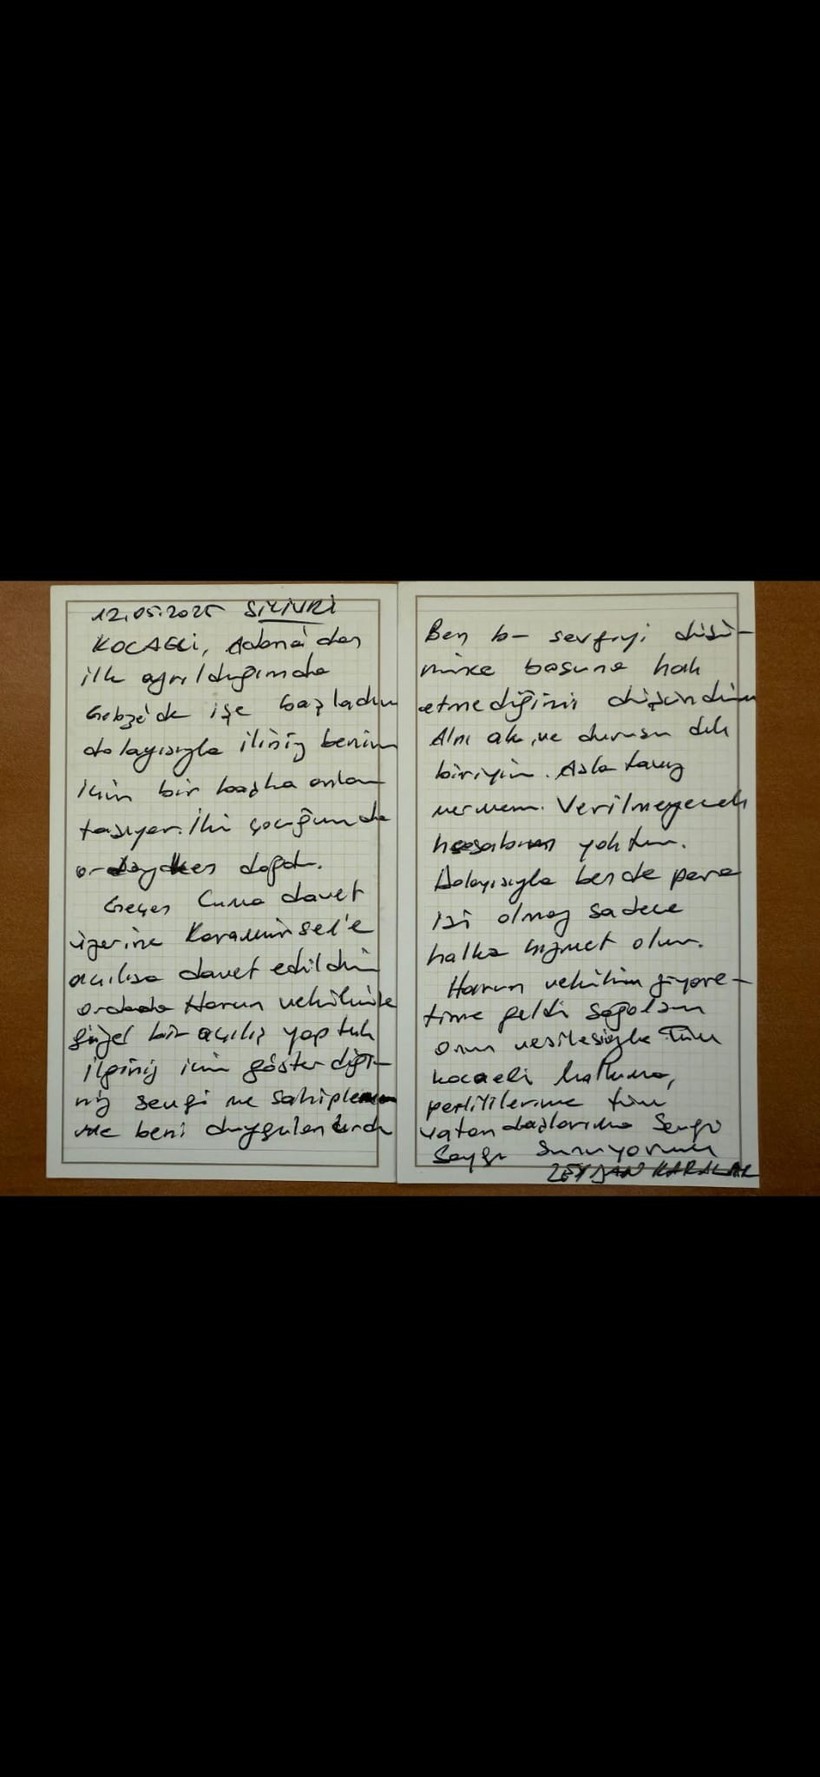 12.05.2025 SİLİVRİ
KOCAELİ, Adana'dan
ilk ayrıldığımda
Gebze'de işe başladım
dolayısıyla iliniz benim
için bir başka anlam
taşıyor. İki çocuğum da
ordayken doğdu.
Geçen Cuma davet
üzerine Karamürsel'e
açılışa davet edildim
ordada Harun vekilimle
güzel bir açılış yaptık
ilginiz için gösterdiği-
niz sevgi ve sahiplenme
beni duygulandırdı
Ben bu sevgiyi düşü-
nünce basuna hak
etmediğimi düşündüm
Alnı ak, ve duruşu dik
biriyim. Asla taviz
vermem. Verilmeyecek
hesabım yoktur.
Dolayısıyla bende para
işi olmaz sadece
halka hizmet olur.
Harun vekilim ziyare-
time geldi sağolsun
onun vesilesiyle Tüm
kocaeli halkıma,
partililerime tüm
vatandaşlarıma Sevgi
Saygı Sunuyorum
ZEYDAN KARALAR